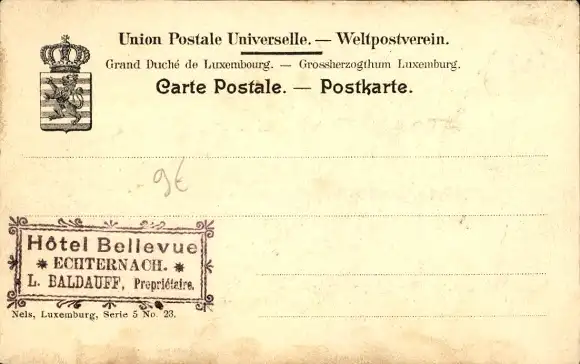 Union Postale Universelle. — Weltpostverein.
Grand Duché de Luxembourg. — Grossherzogthum Luxemburg.
Carte Postale. — Postkarte.
9€
Hôtel Bellevue
* ECHTERNACH. *
L. BALDAUFF, Propriétaire.
Nels, Luxemburg, Serie 5 No. 23.